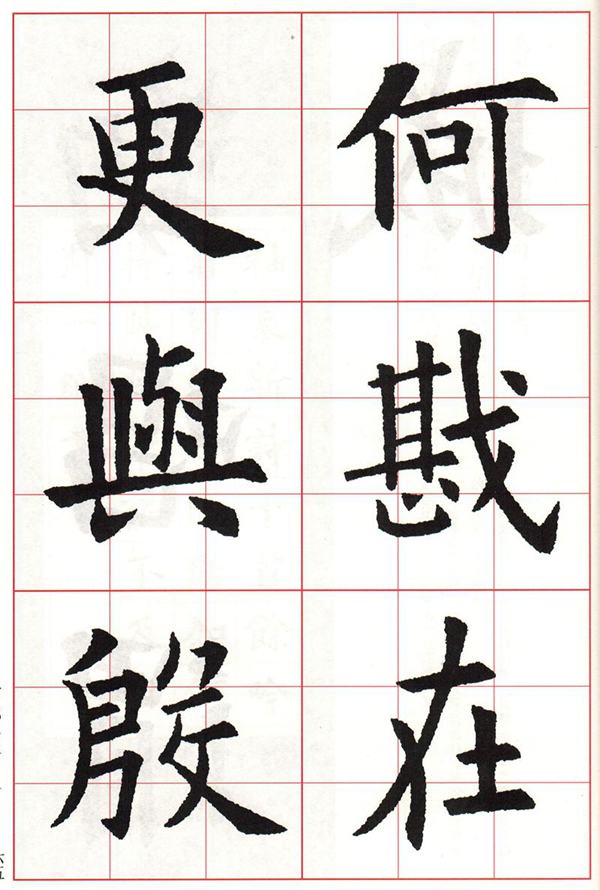 何戡在
更與殷